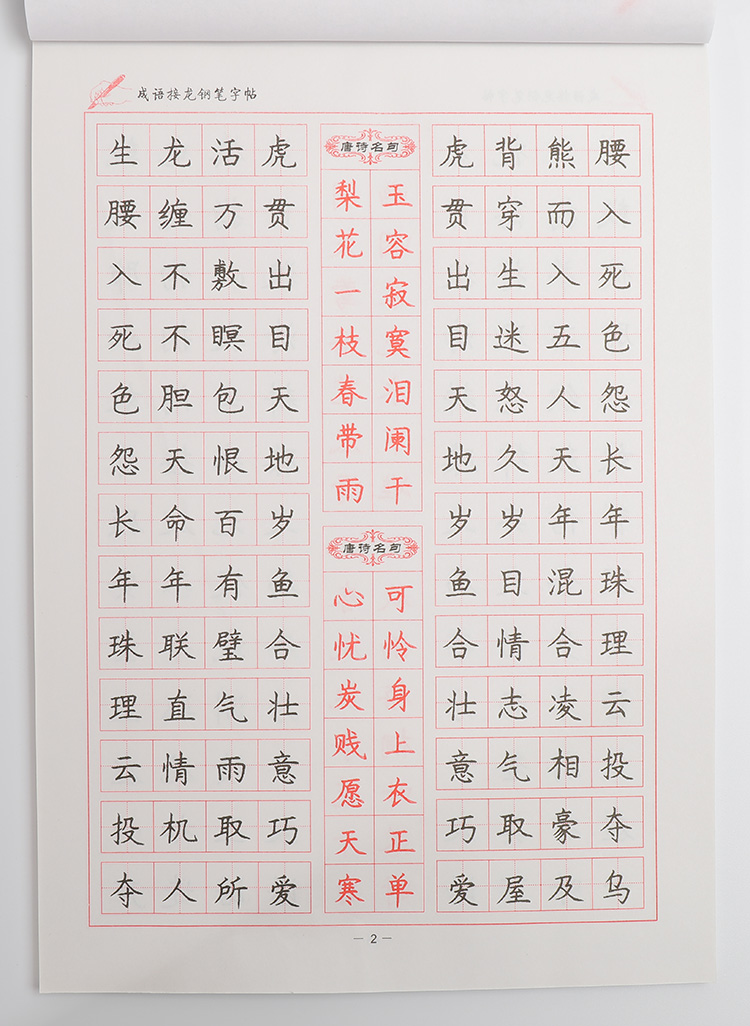 成语接龙钢笔字帖
生龙活虎
虎背熊腰
腰缠万贯
贯穿而入
入不敷出
出生入死
死不瞑目
目迷五色
色胆包天
天怒人怨
怨天恨地
地久天长
长命百岁
岁岁年年
年年有鱼
鱼目混珠
珠联璧合
合情合理
理直气壮
壮志凌云
云情雨意
意气相投
投机取巧
巧取豪夺
夺人所爱
爱屋及乌
唐诗名句
玉容寂寞泪阑干
梨花一枝春带雨
唐诗名句
可怜身上衣正单
心忧炭贱愿天寒
— 2 —